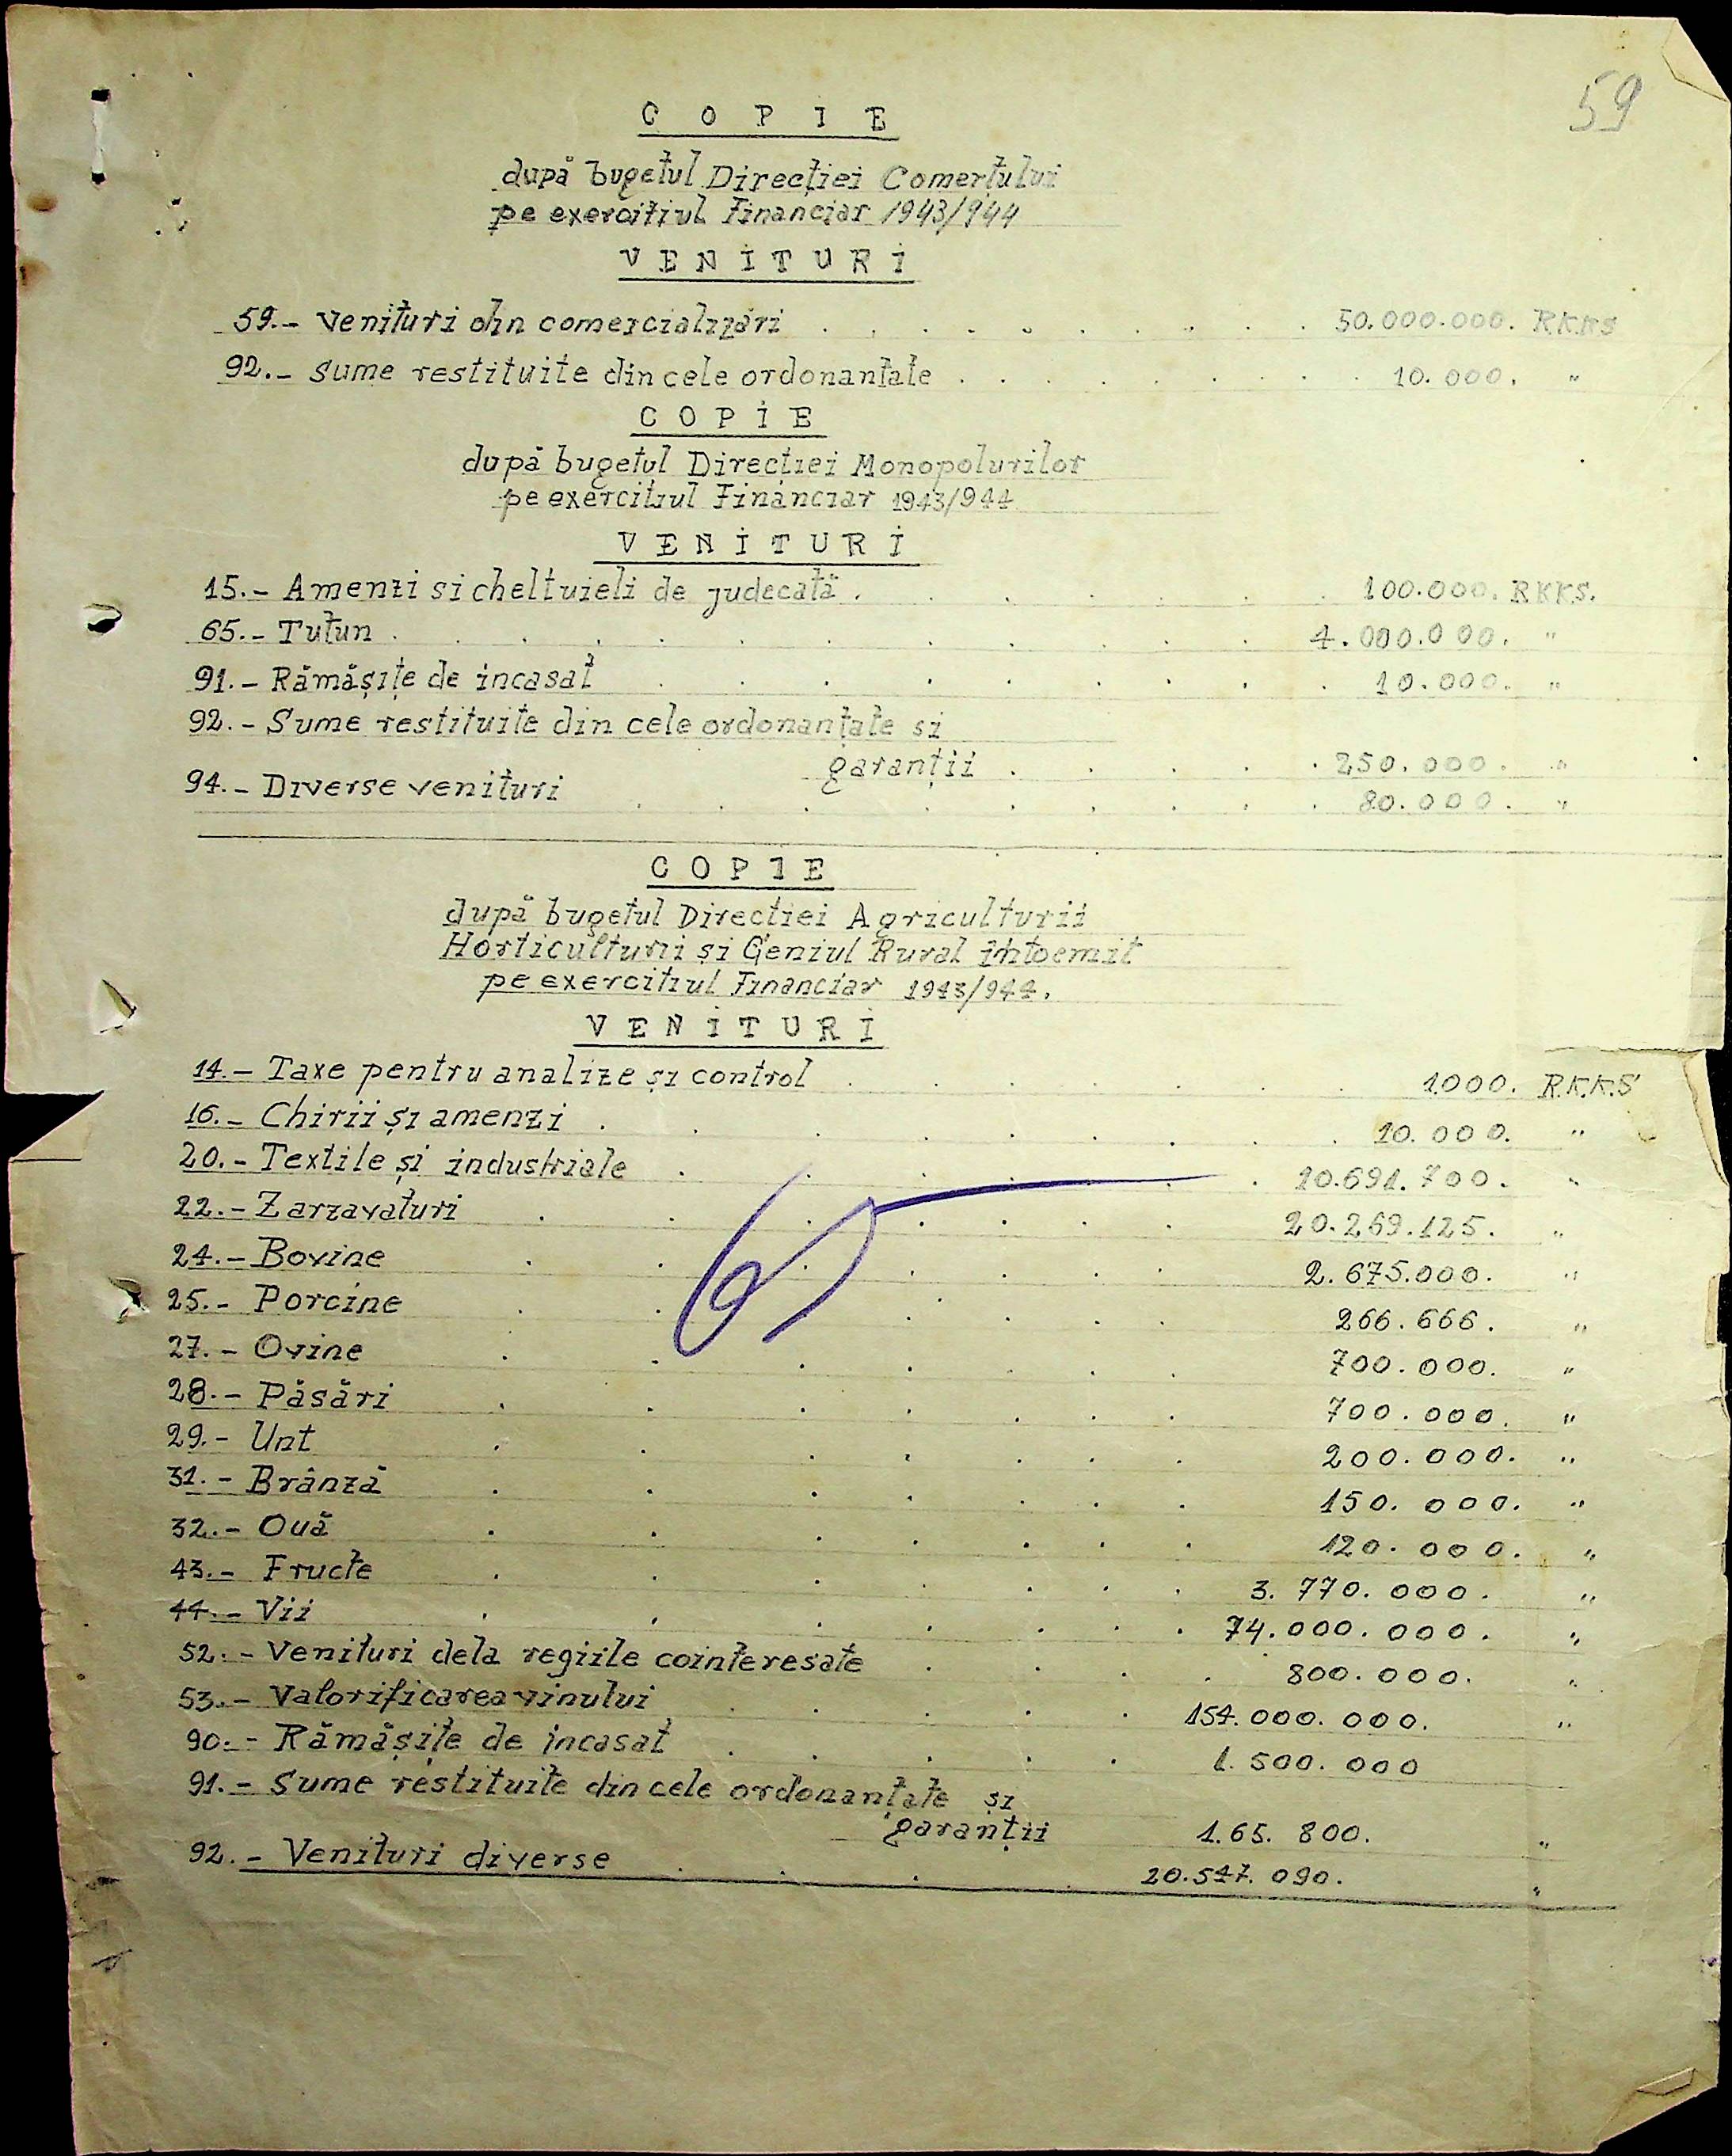 59
COPIE
după bugetul Direcției Comerțului
pe exercițiul Financiar 1943/944
VENITURI
59.- Venituri din comercializări . . . . . . . . . . 50.000.000. RKKS
92.- Sume restituite din cele ordonanțate . . . . . . . . . 10.000. "
COPIE
după bugetul Direcției Monopolurilor
pe exercițiul Financiar 1943/944
VENITURI
15.- Amenzi si cheltuieli de judecată . . . . . . . 100.000. RKKS.
65.- Tutun . . . . . . . . . . 4.000.000. "
91.- Rămășițe de incasat . . . . . . . . 10.000. "
92.- Sume restituite din cele ordonanțate si
garanții . . . . . 250.000. "
94.- Diverse venituri . . . . . . . . . 80.000. "
COPIE
după bugetul Direcției Agriculturii
Horticulturii și Geniul Rural întocmit
pe exercițiul Financiar 1943/944.
VENITURI
14.- Taxe pentru analize și control . . . . . . . 1000. R.K.K.S
16.- Chirii și amenzi . . . . . . . . . 10.000. "
20.- Textile și industriale . . . . . . . 10.691.700. "
22.- Zarzavaturi . . . . . . . 20.269.125. "
24.- Bovine . . . . . . . 2.675.000. "
25.- Porcine . . . . . . 266.666. "
27.- Ovine . . . . . . 700.000. "
28.- Păsări . . . . . . . 700.000. "
29.- Unt . . . . . . . 200.000. "
31.- Brânză . . . . . . . 150.000. "
32.- Ouă . . . . . . . 120.000. "
43.- Fructe . . . . . . . 3.770.000. "
44.- Vii . . . . . . . 74.000.000. "
52.- Venituri dela regiile cointeresate . . . . 800.000. "
53.- Valorificarea vinului . . . . . 154.000.000. "
90.- Rămășițe de incasat . . . . . 1.500.000
91.- Sume restituite din cele ordonanțate și
garanții 1.65.800. "
92.- Venituri diverse . . . . 20.547.090. "